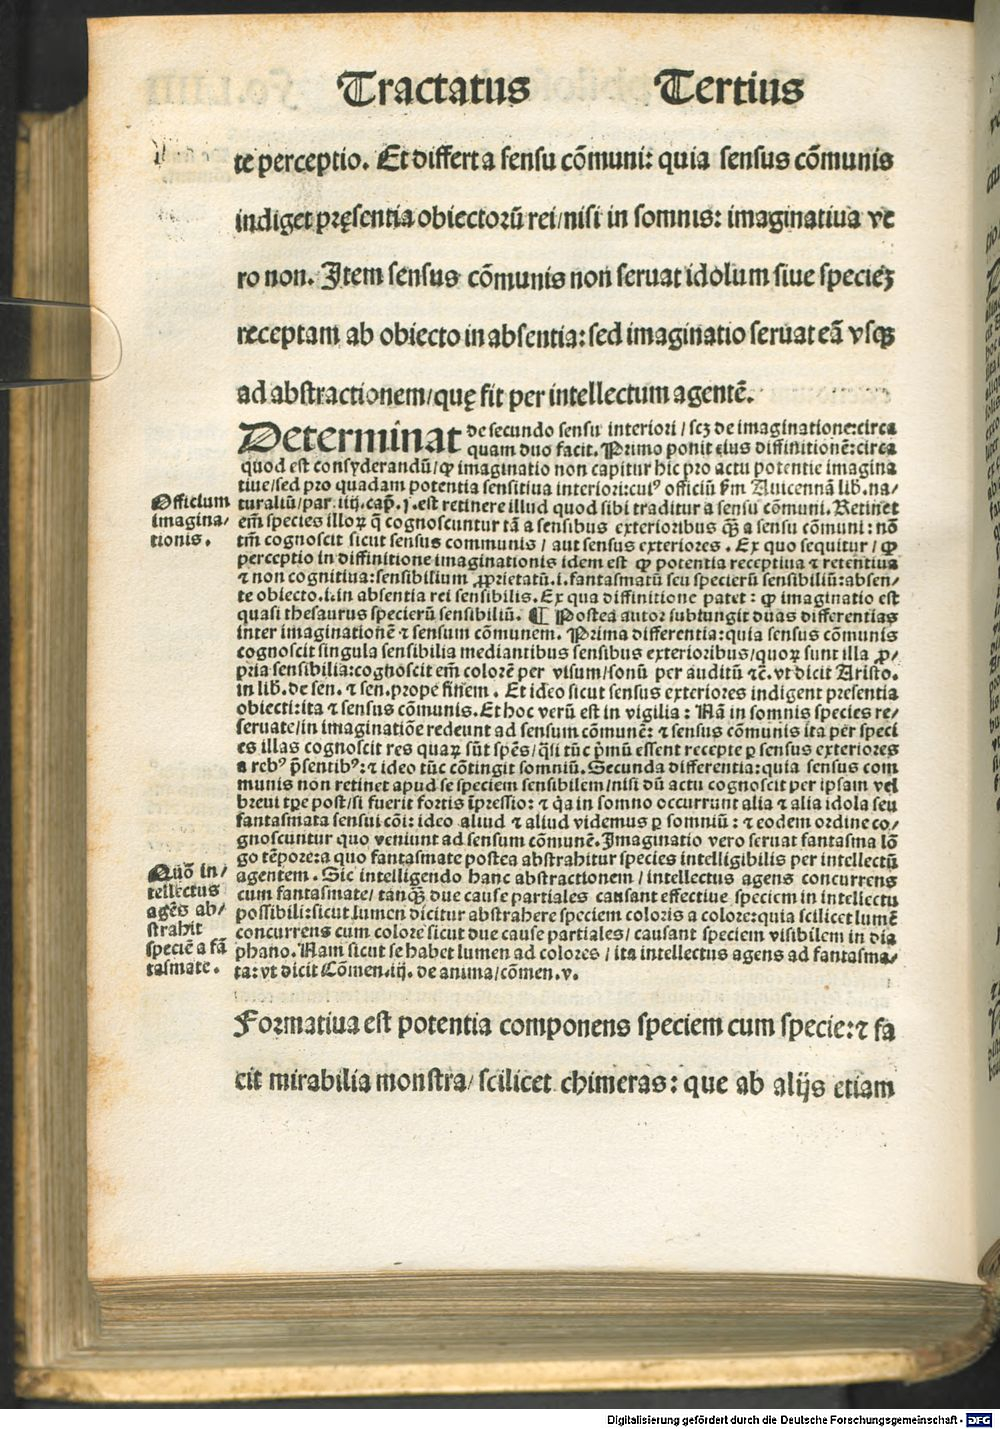 Tractatus Tertius
te perceptio. Et differt a sensu cōmuni: quia sensus cōmunis
indiget pręsentia obiectorū rei/nisi in somnis: imaginatiua ve
ro non. Item sensus cōmunis non seruat idolum siue speciēʒ
receptam ab obiecto in absentia: sed imaginatio seruat eā vsqꝫ
ad abstractionem/quę fit per intellectum agentē.
Determinat de secundo sensu interiori/scꝫ de imaginatione:circa
quam duo facit. Primo ponit eius diffinitionē:circa
quod est consyderandū/ꝙ imaginatio non capitur hic pro actu potentie imagina
tiue/sed pro quadam potentia sensitiua interiori:cuiꝰ officiū ẜm Auicennā lib. na-
turaliū/par. iiij. cap. j. est retinere illud quod sibi traditur a sensu cōmuni. Retinet
em̄ species illoꝝ q̄ cognoscuntur tā a sensibus exterioribus qꝫ̄ a sensu cōmuni: nō
tm̄ cognoscit sicut sensus communis/ aut sensus exteriores. Ex quo sequitur/ ꝙ
perceptio in diffinitione imaginationis idem est ꝙ potentia receptiua ⁊ retentiua
⁊ non cognitiua:sensibilium ꝓprietatū.i.fantasmatū seu specierū sensibiliū:absen-
te obiecto.i.in absentia rei sensibilis. Ex qua diffinitione patet: ꝙ imaginatio est
quasi thesaurus specierū sensibiliū. ¶ Postea autor subiungit duas differentias
inter imaginationē ⁊ sensum cōmunem. Prima differentia:quia sensus cōmunis
cognoscit singula sensibilia mediantibus sensibus exterioribus/quoꝝ sunt illa ꝓ-
pria sensibilia:cognoscit em̄ colorē per visum/sonū per auditū ⁊c. vt dicit Aristo.
in lib. de sen. ⁊ sen. prope finem. Et ideo sicut sensus exteriores indigent presentia
obiecti:ita ⁊ sensus cōmunis. Et hoc verū est in vigilia: Nā in somnis species re-
seruate/in imaginatiōe redeunt ad sensum cōmunē: ⁊ sensus cōmunis ita per speci
es illas cognoscit res quaꝝ sūt sp̄es/q̄si tūc p̄mū essent recepte ꝑ sensus exteriores
a rebꝰ p̄sentibꝰ:⁊ ideo tūc cōtingit somniū. Secunda differentia:quia sensus com
munis non retinet apud se speciem sensibilem/nisi dū actu cognoscit per ipsam vel
breui tp̄e post/si fuerit fortis īpressio: ⁊ q̄a in somno occurrunt alia ⁊ alia idola seu
fantasmata sensui cōi: ideo aliud ⁊ aliud videmus ꝑ somniū: ⁊ eodem ordine co-
gnoscuntur quo veniunt ad sensum cōmunē. Imaginatio vero seruat fantasma lō
go tēpore:a quo fantasmate postea abstrahitur species intelligibilis per intellectū
agentem. Sic intelligendo hanc abstractionem/intellectus agens concurrens
cum fantasmate/ tanqꝫ̄ due cause partiales causant effectiue speciem in intellectu
possibili:sicut lumen dicitur abstrahere speciem coloris a colore:quia scilicet lumē
concurrens cum colore sicut due cause partiales/ causant speciem visibilem in dia
phano. Nam sicut se habet lumen ad colores/ita intellectus agens ad fantasma-
ta: vt dicit Cōmen.iij. de anima/cōmen.v.
Officium
imagina-
tionis.
Quō in-
tellectus
agēs ab-
strahit
speciē a fā
tasmate.
Formatiua est potentia componens speciem cum specie:⁊ fa
cit mirabilia monstra/ scilicet chimeras: que ab alijs etiam
Digitalisierung gefördert durch die Deutsche Forschungsgemeinschaft - DFG